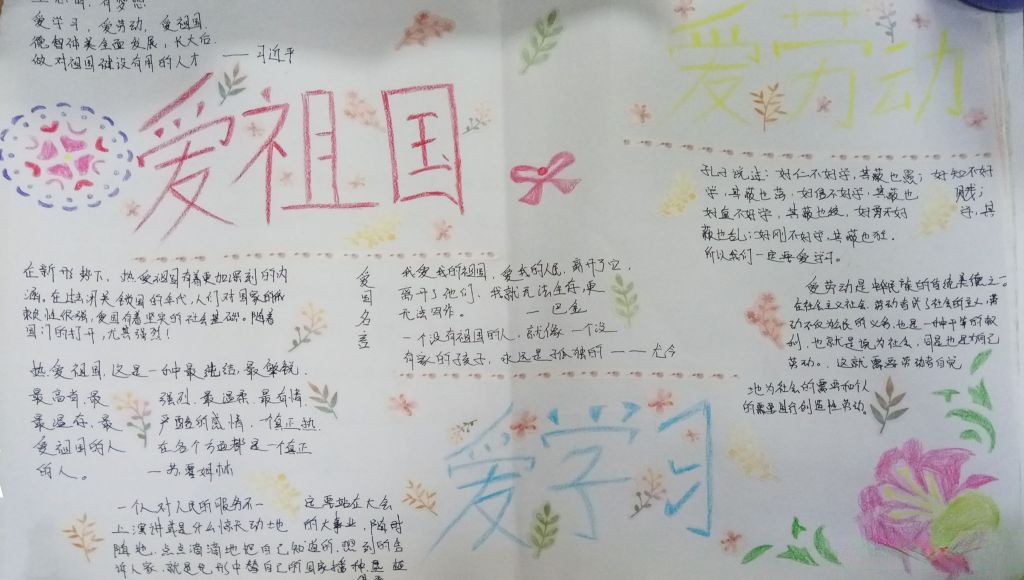 爱学习，爱劳动，爱祖国.
德智体美全面发展，长大后.
做对祖国建设有用的人才 ——习近平
爱祖国
在新形势下、热爱祖国有着更加深刻的内
涵，在过去闭关锁国的年代，人们对国家的依
赖性很强，爱国有着坚实的社会基础。随着
国门的打开，尤其强烈！
热爱祖国，这是一种最纯洁、最敏锐、
最高尚、最 强烈、最温柔、最有情、
最温存、最 严酷的感情，一个真正热
爱祖国的人 在各个方面都是一个真正
的人。 —苏霍姆林
一个人对人民的服务不一 定要站在大会
上演讲或是什么惊天动地 的大事业，随时
随地，点点滴滴地把自己知道的、想到的告
诉人家，就是无形中替自己的国家播种、垦植
爱国名言
我爱我的祖国，爱我的人民，离开了它，
离开了他们，我就无法生存，更
无法写作。 —巴金
一个没有祖国的人，就像一个没
有家的孩子，永远是孤独的 ——尤今
爱学习
爱劳动
孔子说过：好仁不好学，其蔽也愚；好知不好
学，其蔽也荡；好信不好学，其蔽也 贼；
好直不好学，其蔽也绞；好勇不好 学，其
蔽也乱；好刚不好学，其蔽也狂。
所以我们一定要爱学习。
爱劳动是中华民族的传统美德之一。
在社会主义社会，劳动者成了社会的主人，劳
动不仅为公民的义务，也是一种平等的权
利，也就是说为社会，同是也是为自己
劳动。，这就需要劳动者自觉
地为社会的需要和个人
的需要进行创造性劳动。